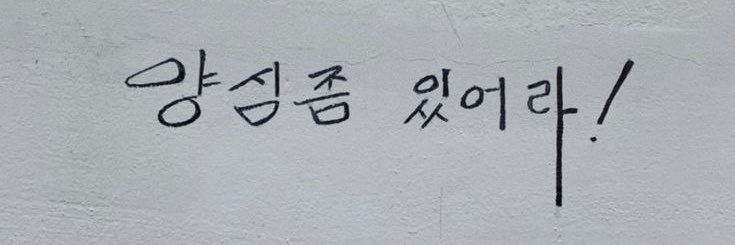 양심좀 있어라!